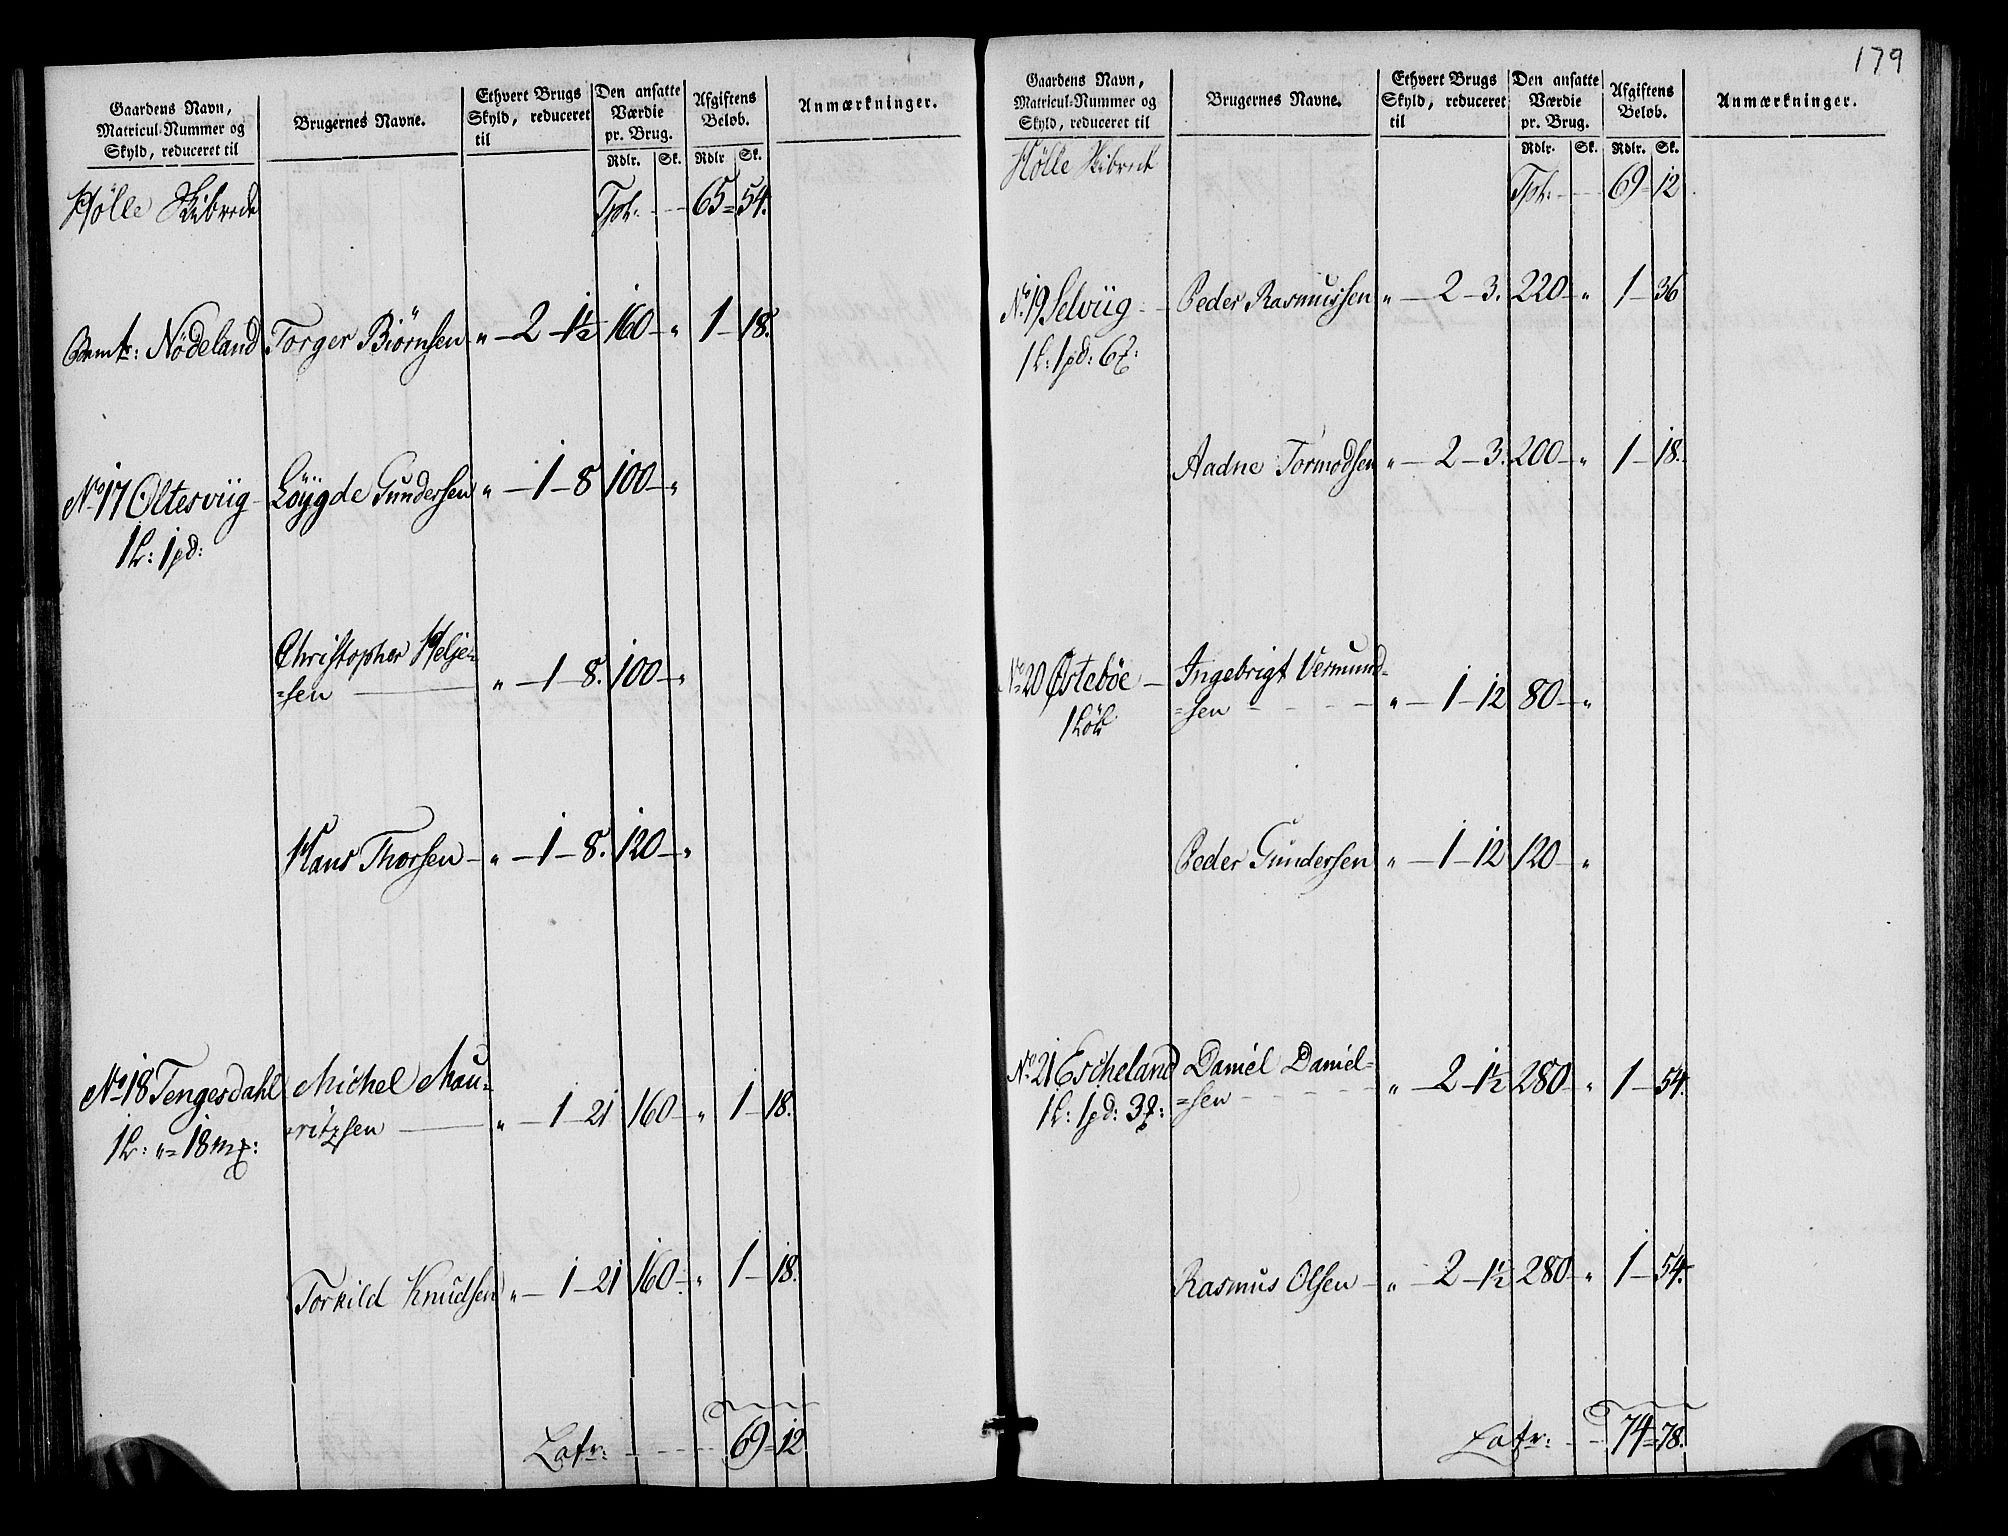 Gaardens Navn,
Matricul-Nummer og
Skyld, reduceret til
Brugernes Navne.
Ethvert Brugs
Skyld, reduceret
til
Den ansatte
Værdie
pr. Brug.
Rdlr. Sk.
Afgiftens
Beløb.
Rdlr Sk.
Anmærkninger.
Hölle Skibrede
Tpt: 65 = 54.
Nödeland Torger Biørnsen „ – 2 – 1½ 160 – „ 1 – 18.
No 17 Oltesviig Löygde Gundersen „ – 1 – 8 100 – „
1 L: 1 pd:
Christopher Helje-
=sen „ – 1 – 8. 100 – „
Hans Thorsen – „ – 1 – 8. 120 – „
No 18 Tengesdahl Michel Mau-
1 L: „ = 18 mꝝ: =ritzsen „ – 1 – 21 160 – „ 1 – 18.
Torkild Knudsen „ – 1 – 21 160 – „ 1 – 18.
Latr: 69 = 12
179
Gaardens Navn,
Matricul-Nummer og
Skyld, reduceret til
Brugernes Navne.
Ethvert Brugs
Skyld, reduceret
til
Den ansatte
Værdie
pr. Brug.
Rdlr. Sk.
Afgiftens
Beløb.
Rdlr. Sk.
Anmærkninger.
Hölle Skibrede
Tpt: 69 = 12
No 19 Selviig Peder Rasmussen „ – 2 – 3. 220 – „ 1 – 36
1 L: 1 pd: 6 ꝝ:
Aadne Tormodsen „ – 2 – 3. 200 – „ 1 – 18.
No 20 Østebøe – Ingebrigt Vermund-
1 Løb =sen „ – 1 – 12 80 – „
Peder Gundersen „ – 1 – 12 120 – „
No 21 Escheland Daniel Daniel=
1 L: 1 pd: 3 ꝝ: =sen „ – 2 – 1½ 280 – „ 1 – 54.
Rasmus Olsen – „ – 2 – 1½ 280 – „ 1 – 54.
Latr: 74 = 78.